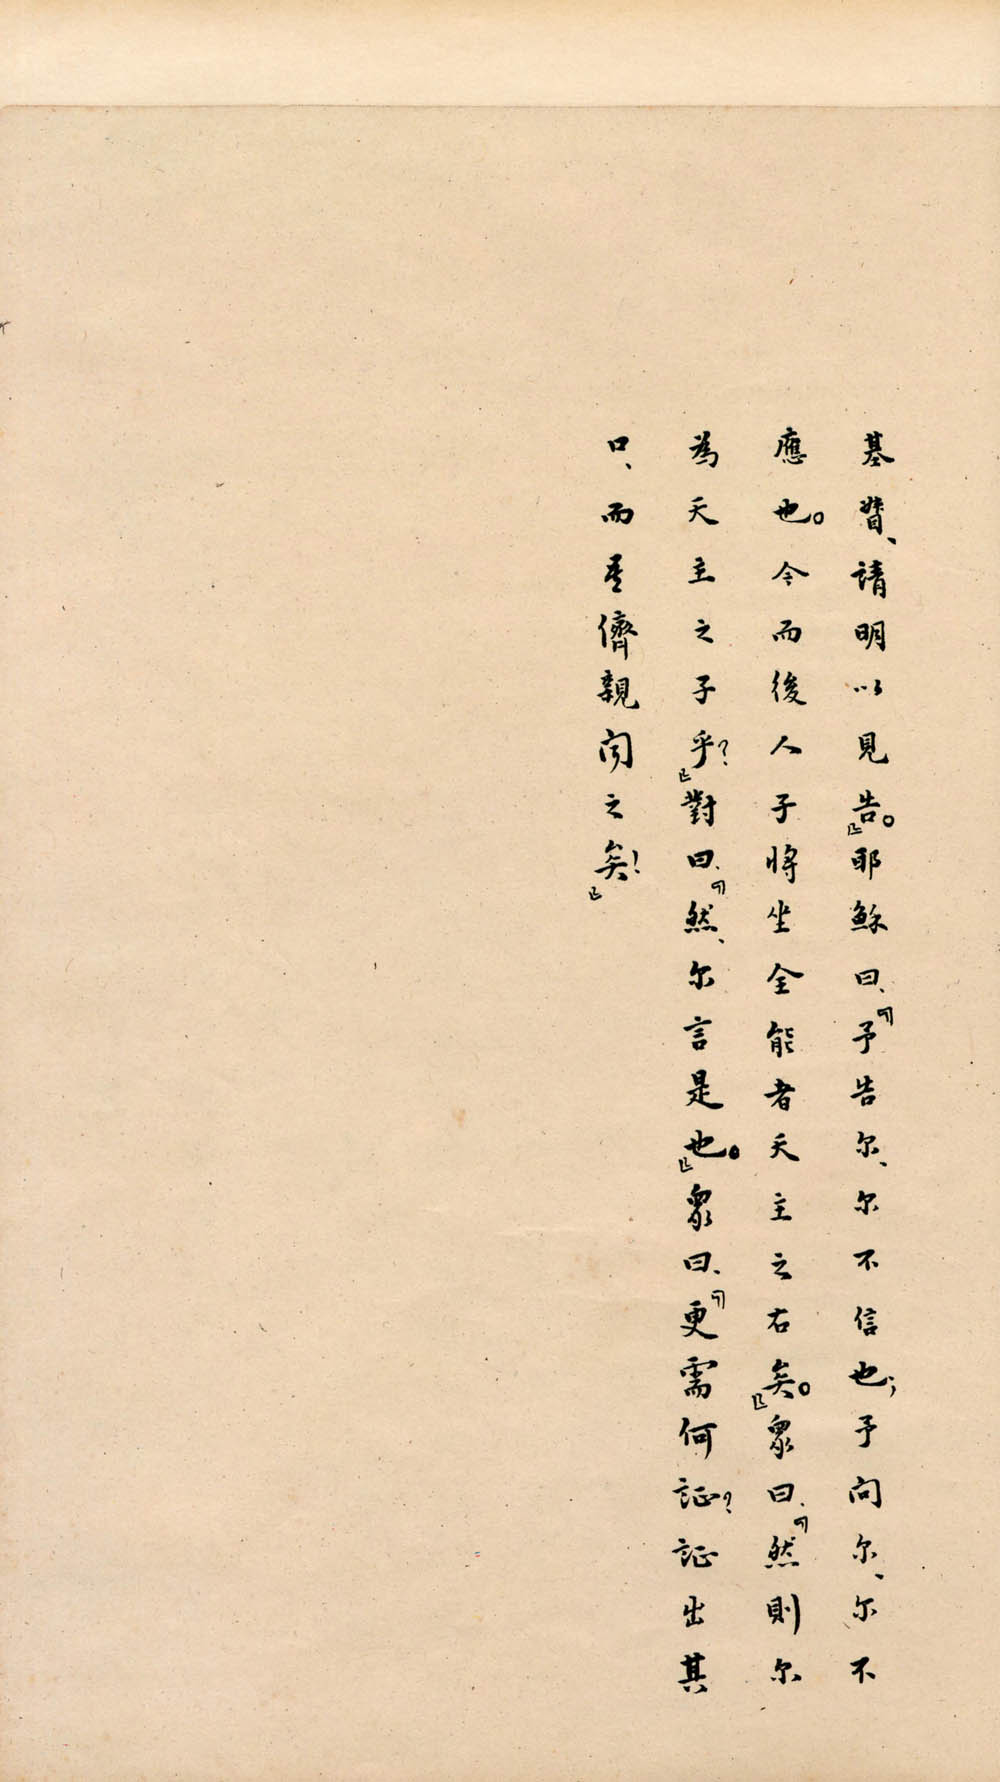 基督、請明以見告。』耶穌曰、『予告尔、尔不信也；予問尔、尔不
應也。今而後人子將坐全能者天主之右矣。』眾曰、『然則尔
為天主之子乎？』對曰、『然、尔言是也。』眾曰、『更需何証？証出其
口、而吾儕親聞之矣！』